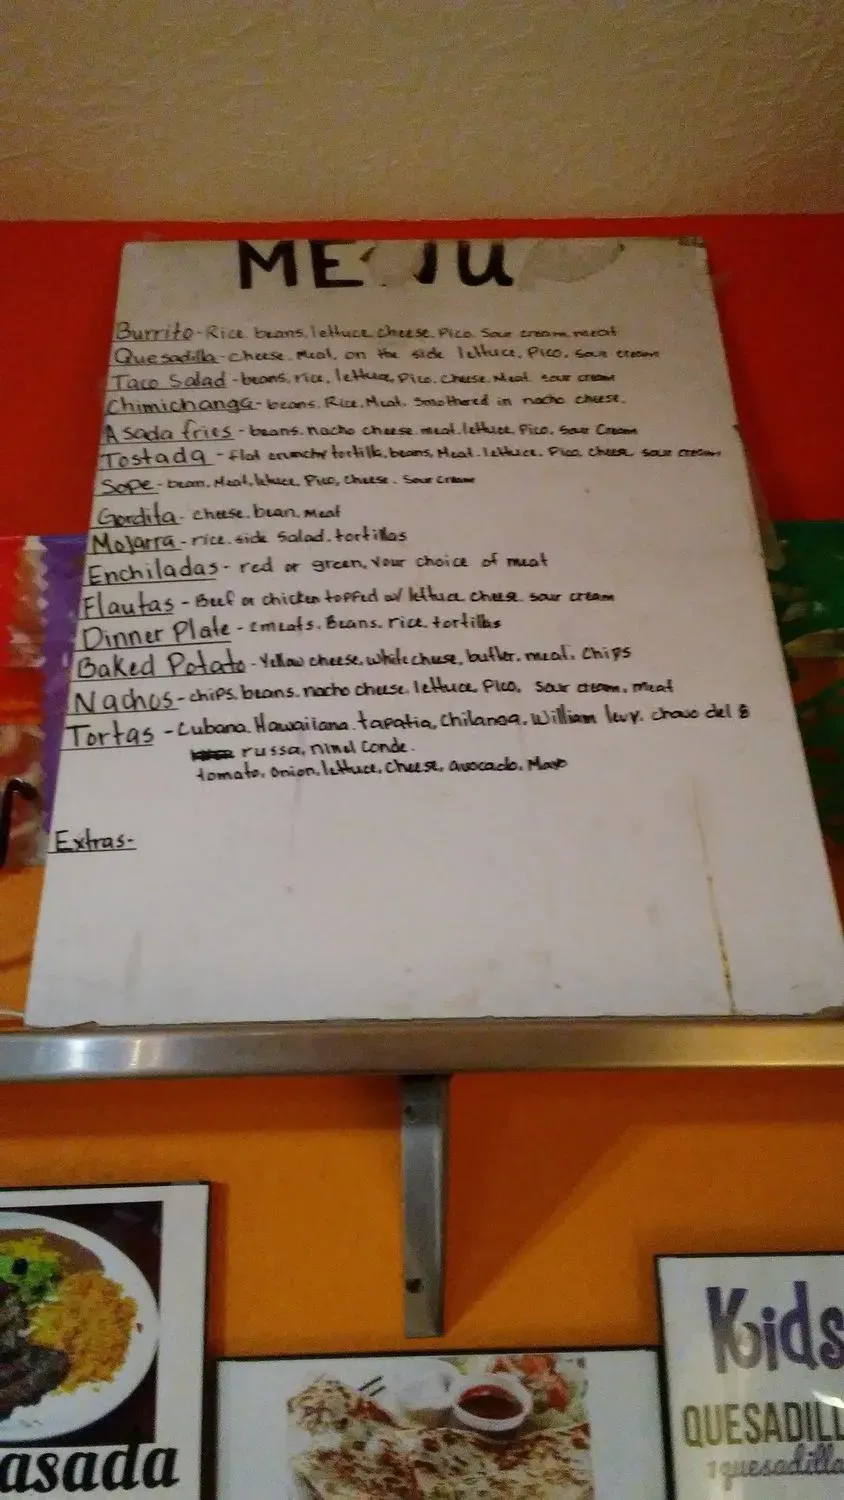 MENU
Burrito - Rice. beans, lettuce, cheese, Pico, Sour cream, meat
Quesadilla - cheese, Meat, on the side lettuce, Pico, Sour cream
Taco Salad - beans, rice, lettuce, Pico, cheese, Meat, sour cream
Chimichanga - beans, Rice, Meat, Smothered in nacho cheese.
Asada fries - beans, nacho cheese, meat, lettuce, Pico, Sour Cream
Tostada - flat crunchy tortilla, beans, Meat, lettuce, Pico, cheese, sour cream
Sope - bean, Meat, lettuce, Pico, Cheese, Sour Cream
Gordita - cheese, bean, Meat
Mojarra - rice, side Salad, tortillas
Enchiladas - red or green, your choice of meat
Flautas - Beef or chicken topped w/ lettuce, cheese, sour cream
Dinner Plate - 2meats, Beans, rice, tortillas
Baked Potato - Yellow cheese, white cheese, butter, meat, Chips
Nachos - chips, beans, nacho cheese, lettuce, Pico, Sour cream, meat
Tortas - Cubana, Hawaiiana, tapatia, Chilanga, William levy, chavo del 8
russa, ninel Conde.
tomato, onion, lettuce, cheese, avocado, Mayo
Extras -
asada
Kids
QUESADILL
1 quesadilla